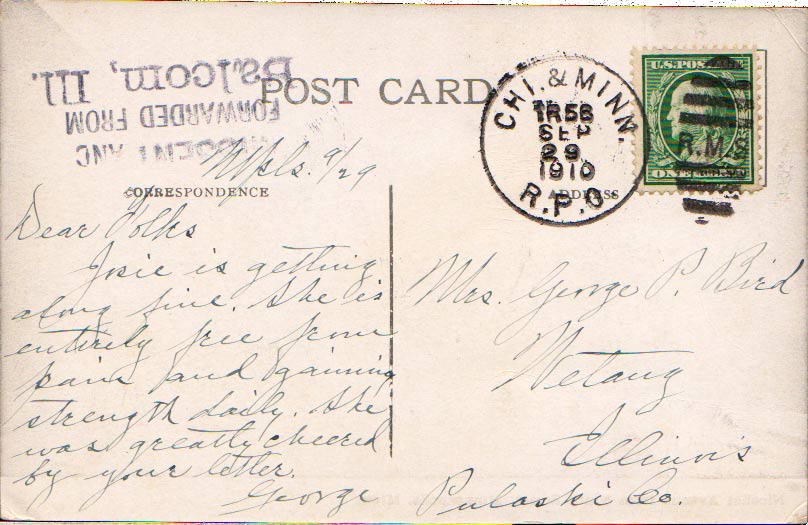 POST CARD
MISSENT AND
FORWARDED FROM
Balcom, Ill.
CHI. & MINN.
TR 58
SEP
29
1910
R.P.O
U.S. POS
R.M.S
ONE
CORRESPONDENCE
ADDRESS
Mpls. 9/29
Dear Folks
Josie is getting
along fine. She is
entirely free from
pain and gaining
strength daily. She
was greatly cheered
by your letter.
George
Mrs. George P. Bird
Wetaug
Illinois
Pulaski Co.